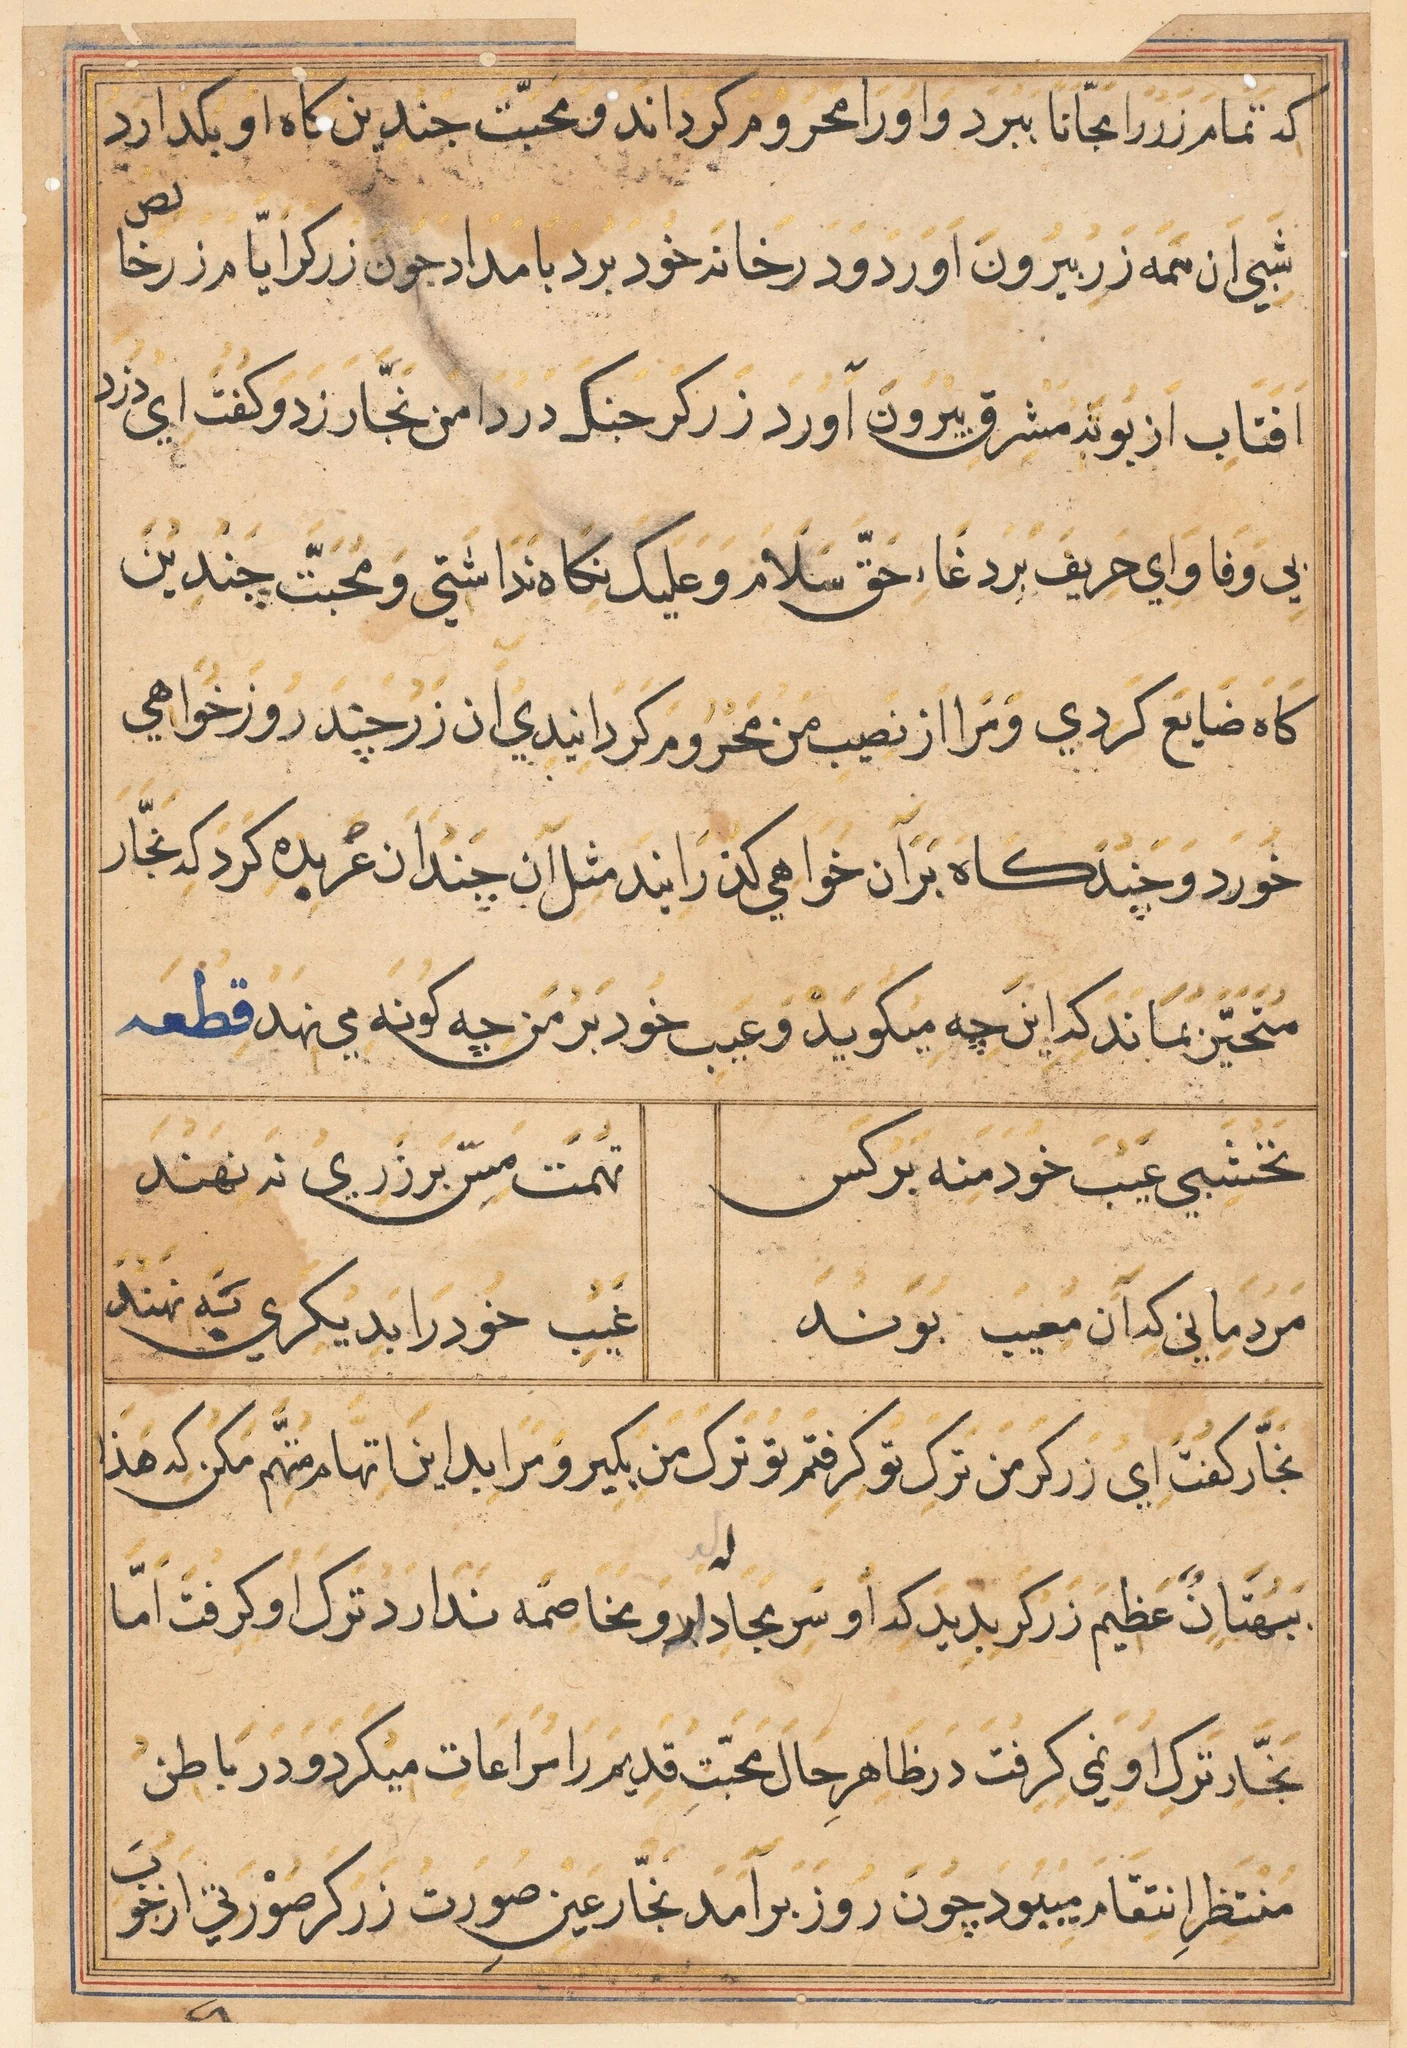 که تمام زر را مجّانا ببرد و اورا محروم کرداند و محبّت چندین کاه او بکدارد
شبی ان همه زر بیرون اورد و در خانه خود برد بامداد جون زرکر ایّام زر خالص
افتاب از بوته مشرق بیرون آورد زرکر جنک در دامن نجّار زد و کفت ای دزد
بی وفا و ای حریف بردغاء حقّ سلام و علیک نکاه نداشتی و محبّت چندین
کاه ضایع کردی و مرا از نصیب من محروم کردانیدی ان زر چند روز خواهی
خورد و چند کاه بر آن خواهی کذرانید مثل آن چندان عربده کرد که نجّار
متحیّر بماند که این چه میکوید و عیب خود بر من چه کونه می نهد قطعه
نخشبی عیب خود منه بر کس
تهمت مسّ بر زری نه نهند
مردمانی که آن معیب بوند
عیب خود را بدیکری به نهند
نجّار کفت ای زرکر من ترک تو کرفتم تو ترک من بکیر و مرا بداین اتهام متهّم مکن که هذا
بهتانٌ عظیم زرکر بدید که او سر مجادله و مخاصمه ندارد ترک او کرفت امّا
نجّار ترک او نمی کرفت در ظاهر حال محبّتِ قدیم را مراعات میکرد و در باطن
منتظرِ انتقام میبود چون روز برآمد نجّار عینِ صورت زرکر صورتی از خوب